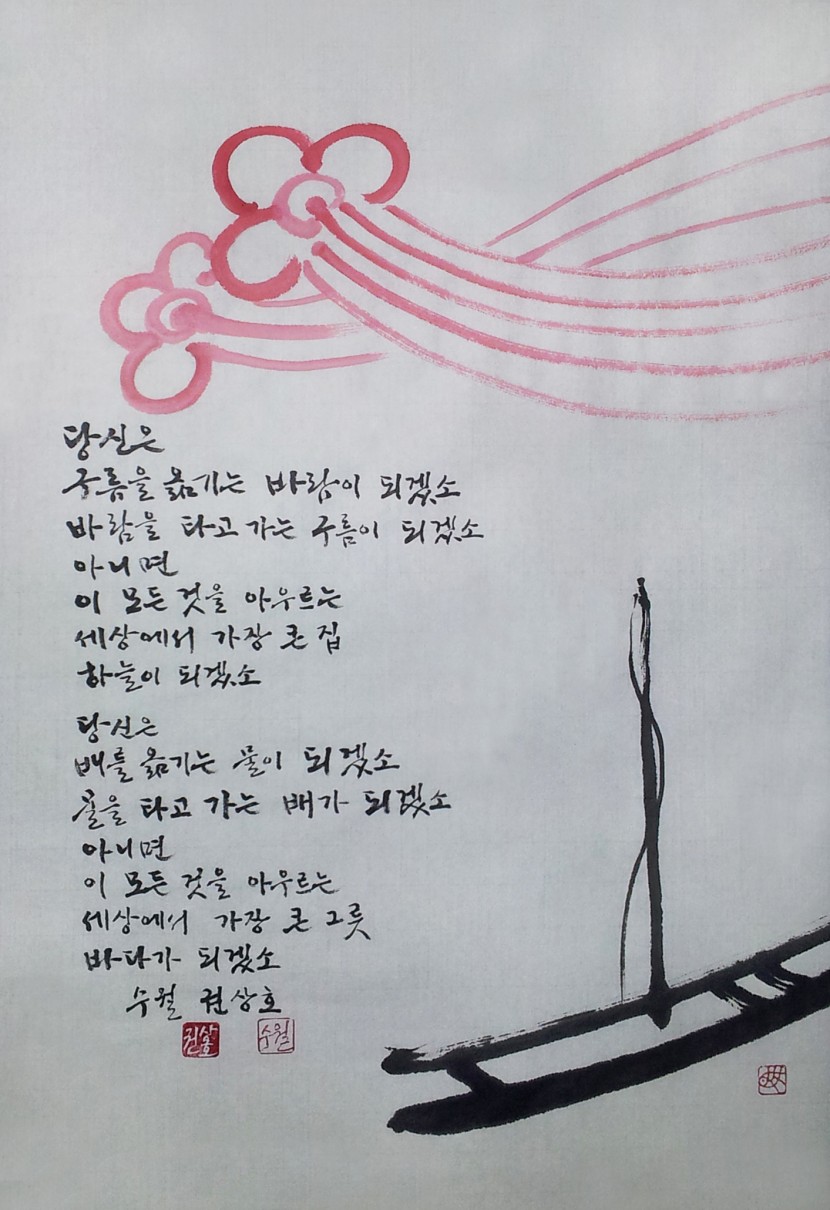 당신은
구름을 옮기는 바람이 되겠소
바람을 타고 가는 구름이 되겠소
아니면
이 모든 것을 아우르는
세상에서 가장 큰 집
하늘이 되겠소
당신은
배를 옮기는 물이 되겠소
물을 타고 가는 배가 되겠소
아니면
이 모든 것을 아우르는
세상에서 가장 큰 그릇
바다가 되겠소
수월 권상호
권상호
수월